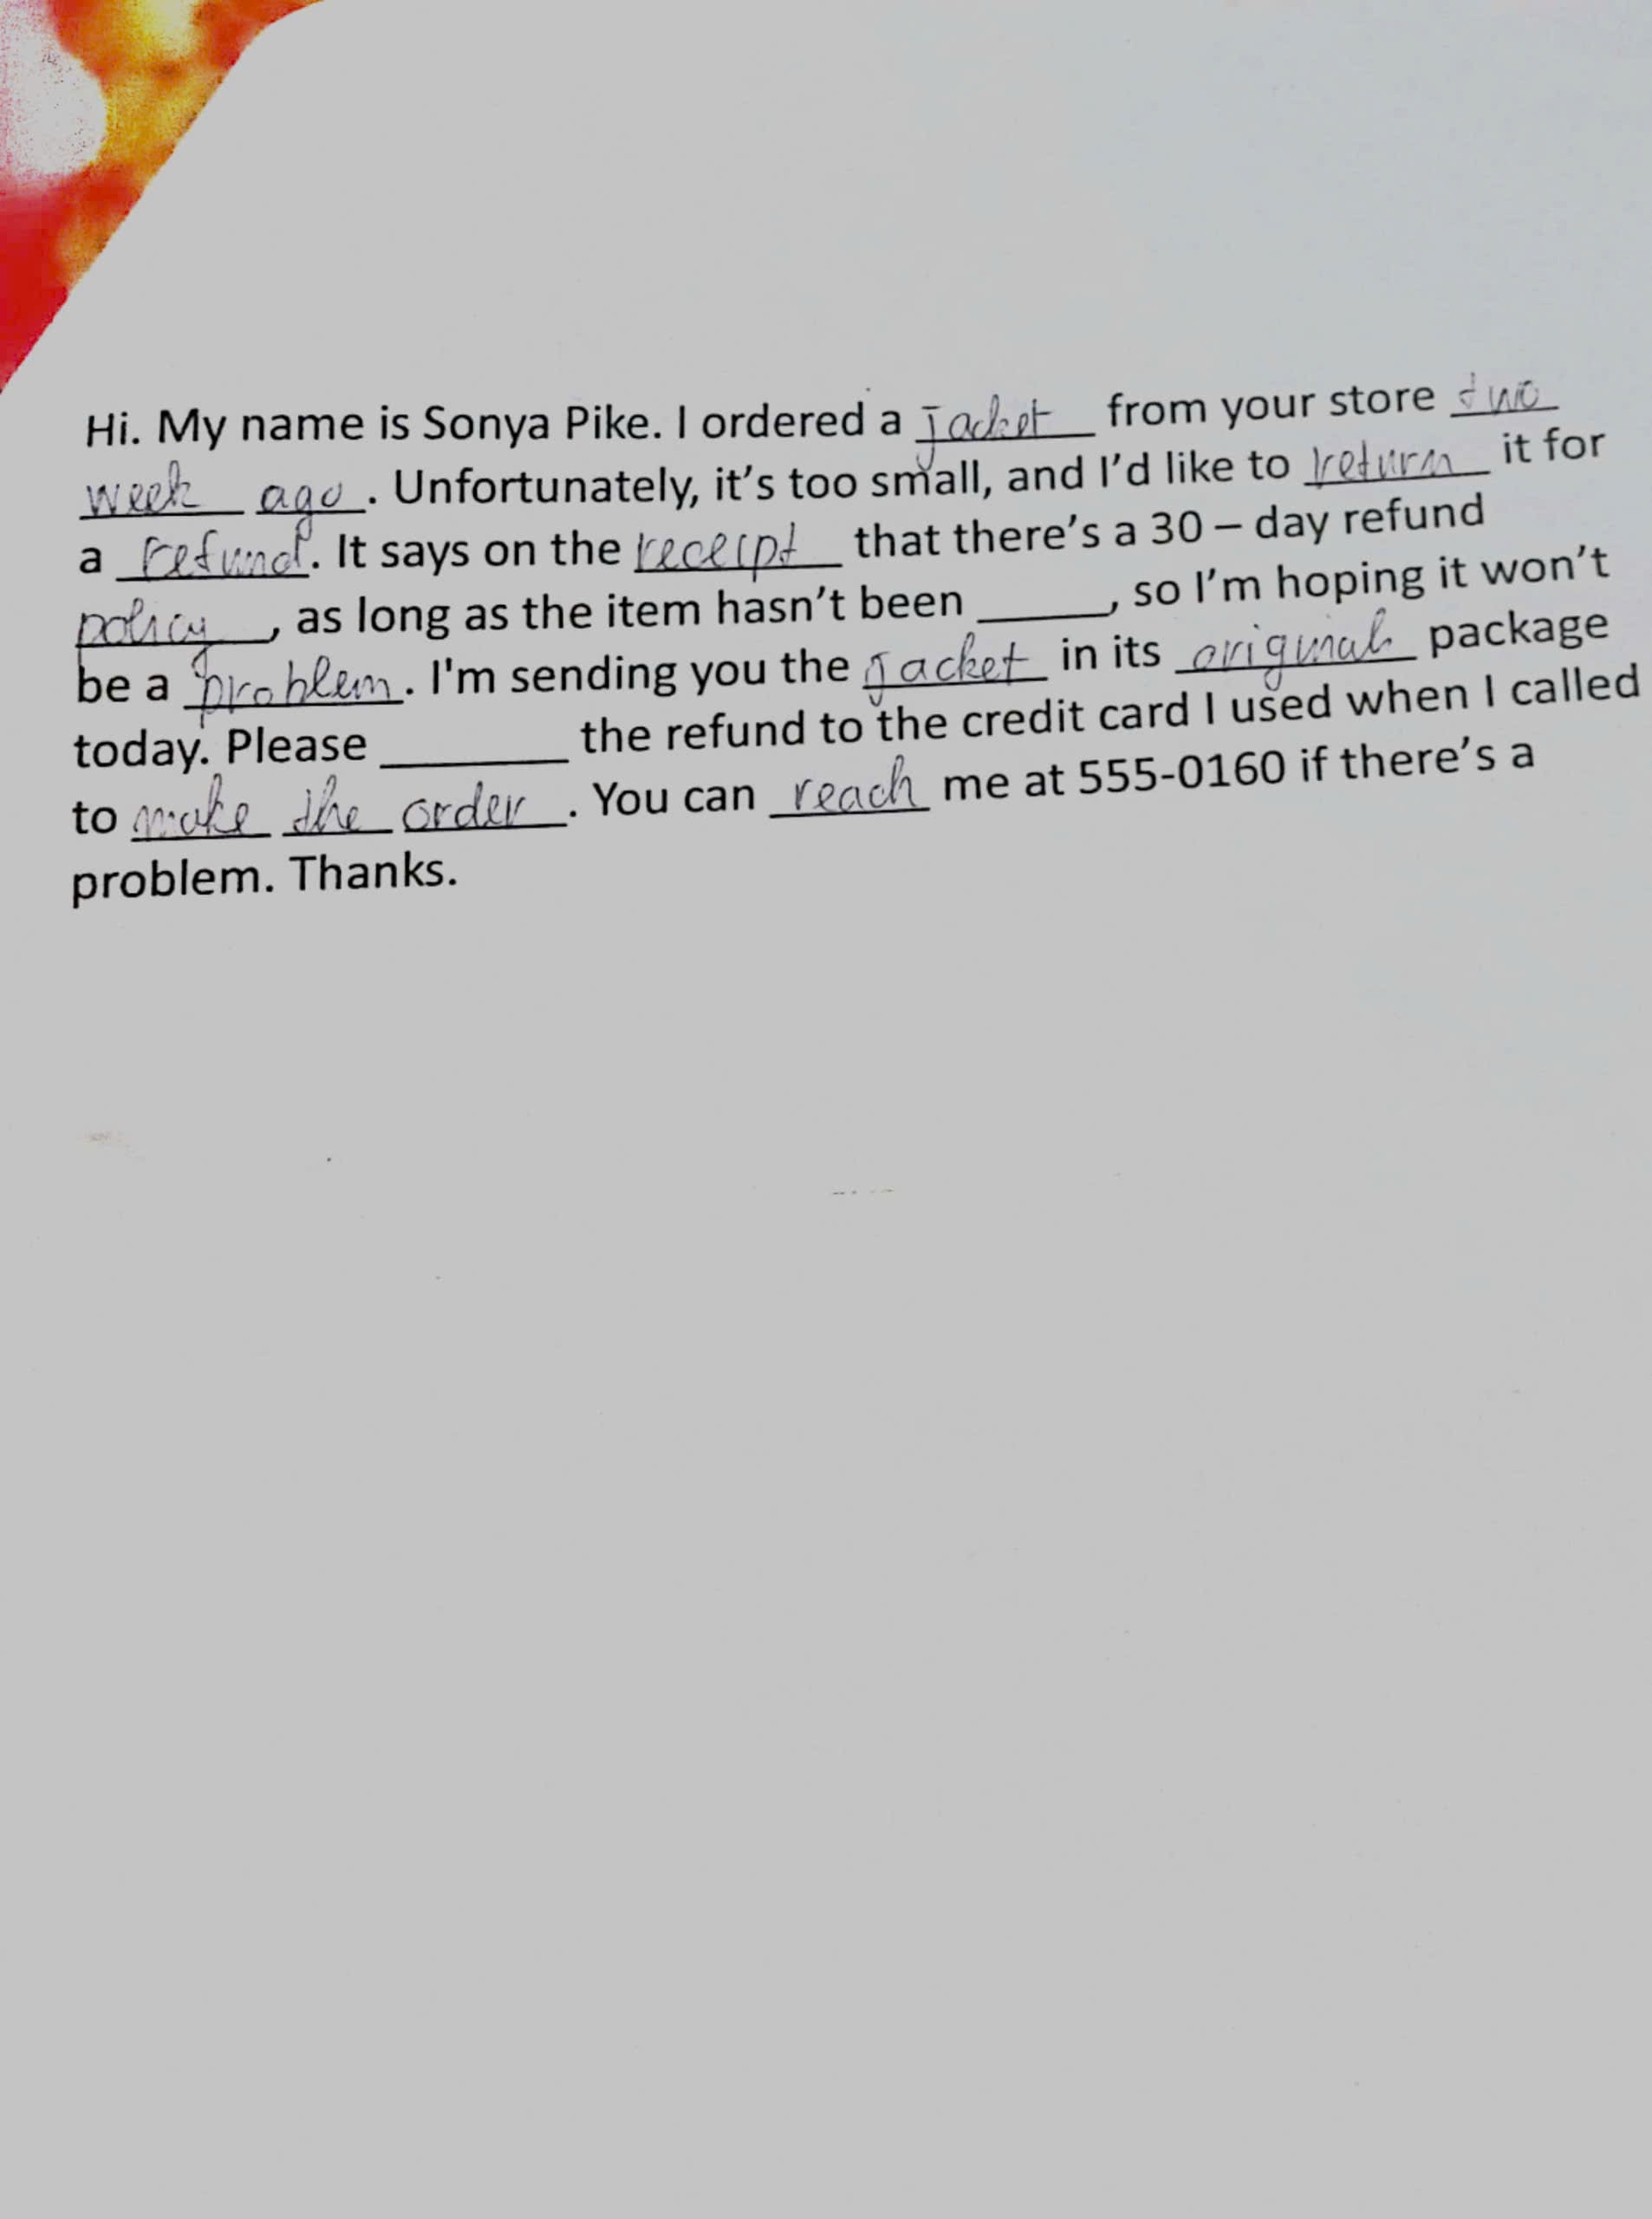 Hi. My name is Sonya Pike. I ordered a jacket from your store two
week ago. Unfortunately, it's too small, and I'd like to return it for
a refund. It says on the receipt that there's a 30 – day refund
policy, as long as the item hasn't been ______, so I'm hoping it won't
be a problem. I'm sending you the jacket in its original package
today. Please ________ the refund to the credit card I used when I called
to make the order. You can reach me at 555-0160 if there's a
problem. Thanks.